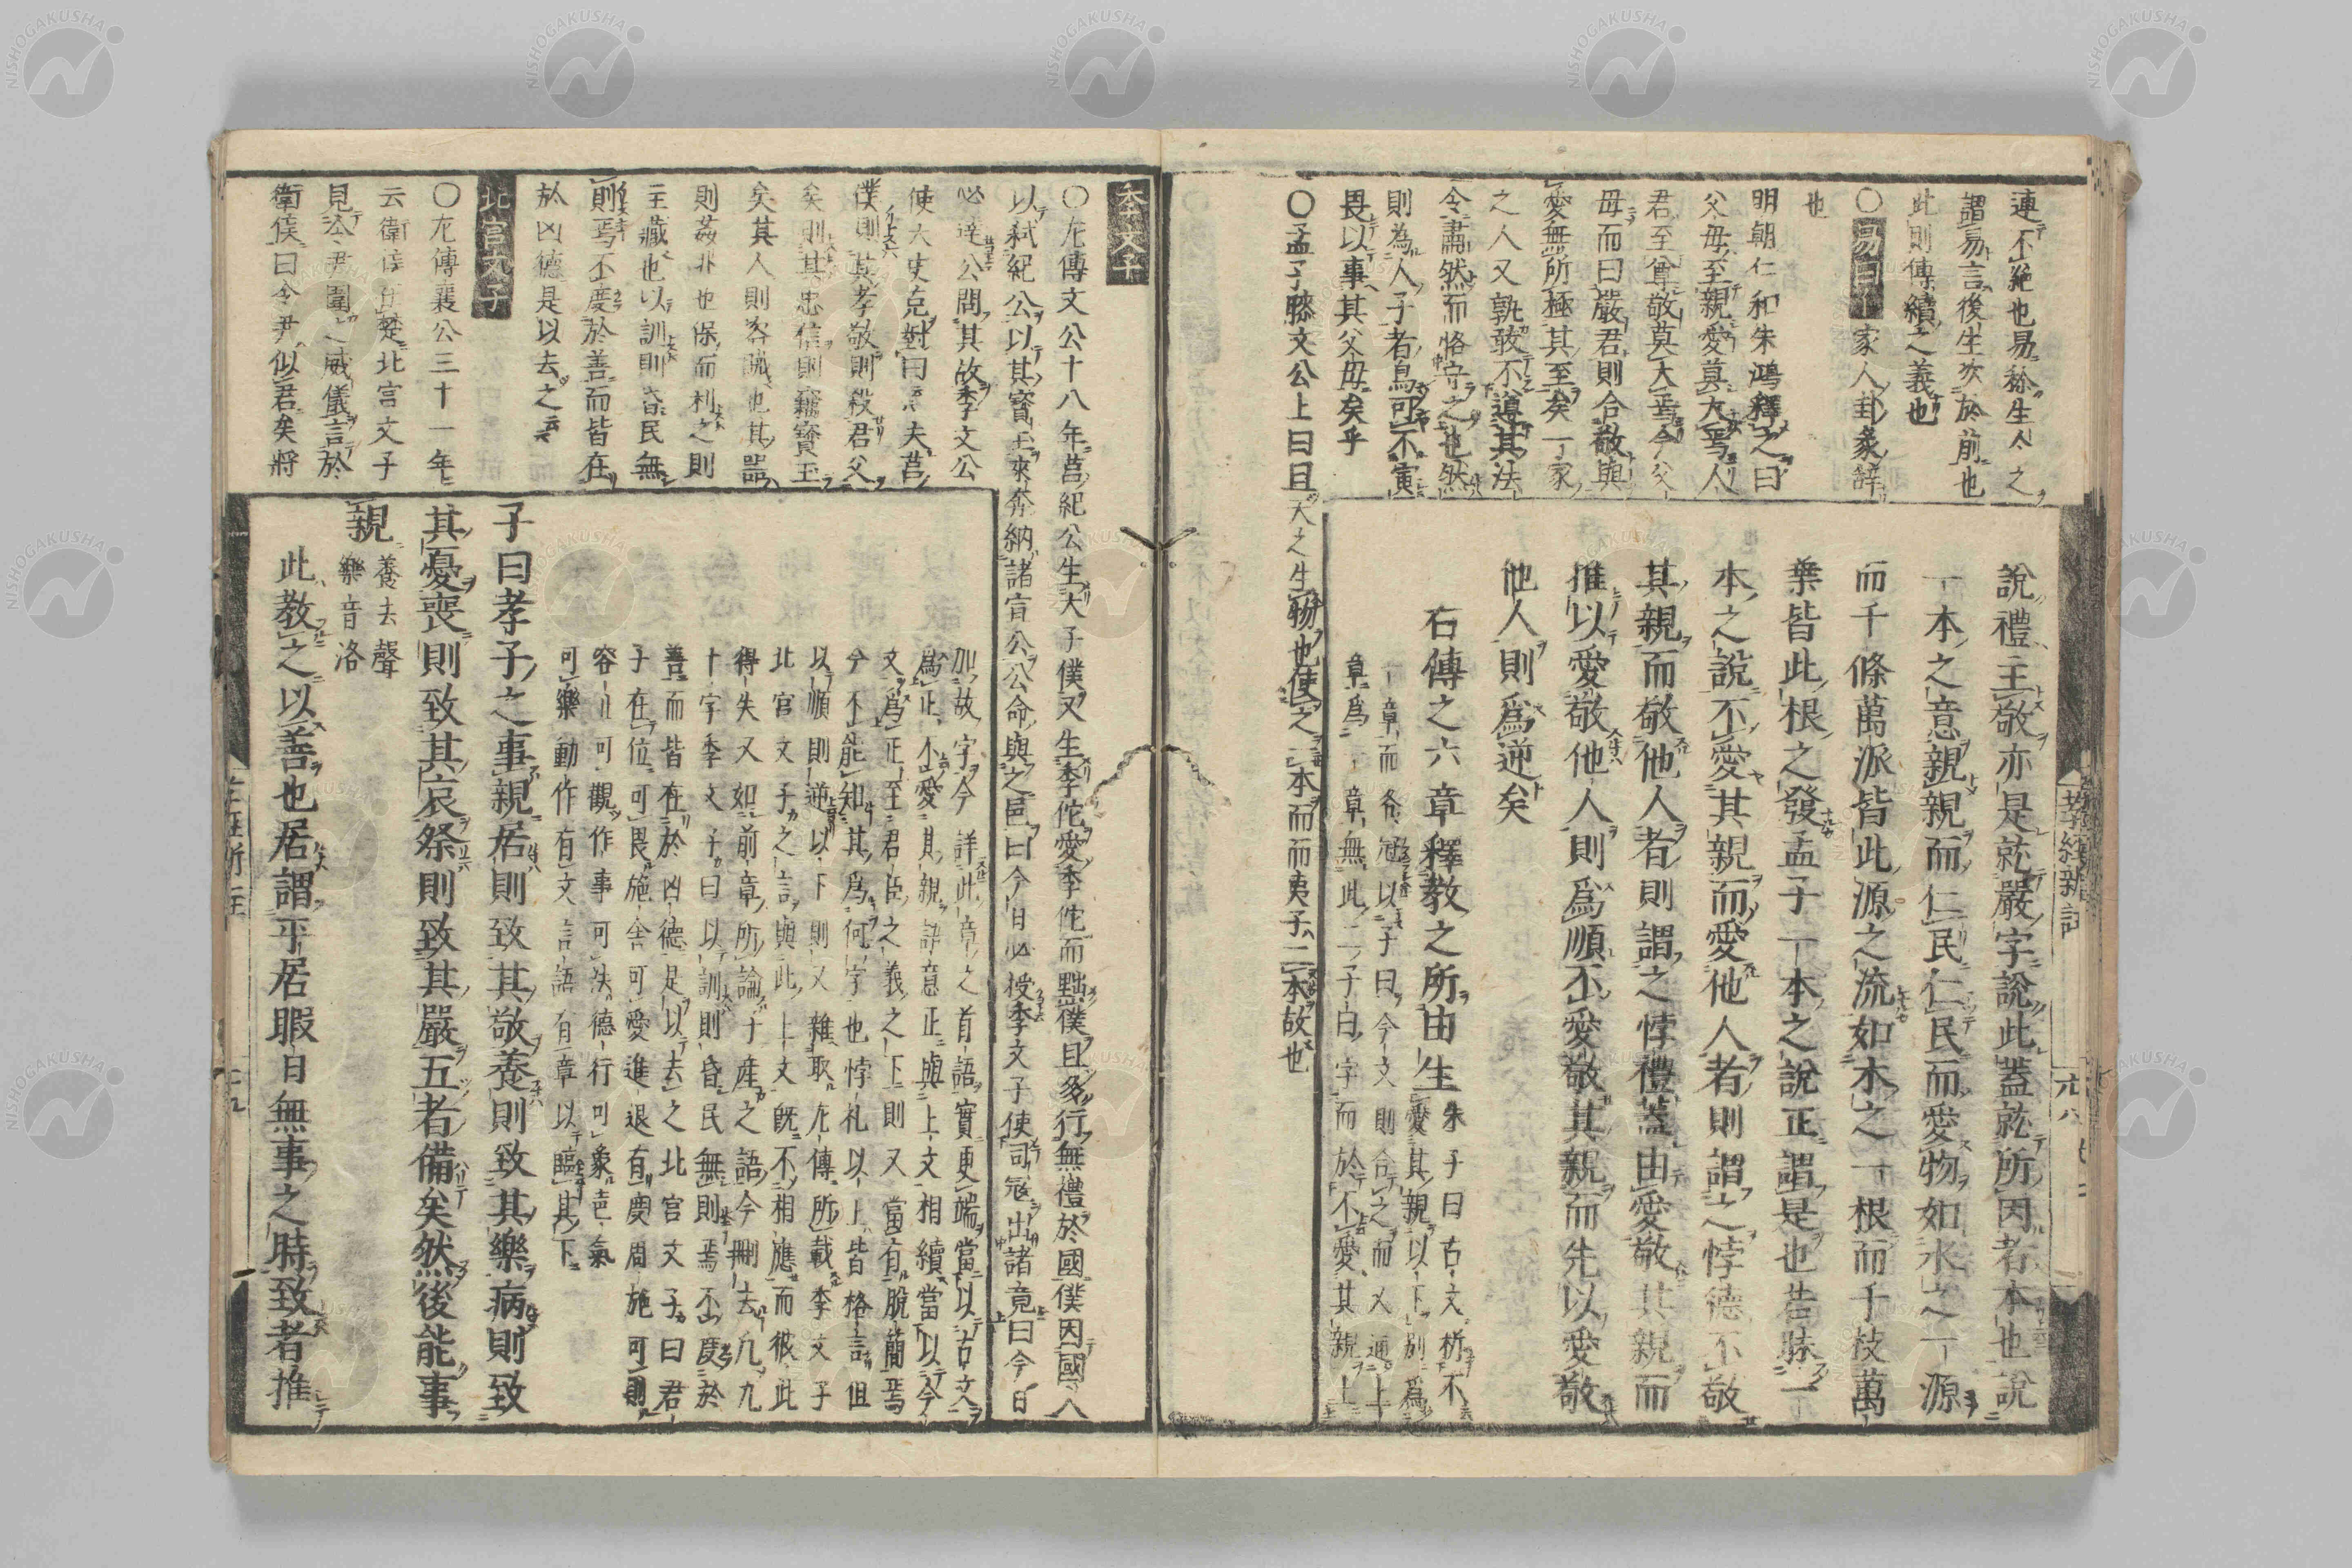 連不絶也易繇生人之
謂易言後生次於前也
此則傳續之義也
○易曰 家人卦彖辭
也
明朝仁和朱鴻釋之曰
父毋至親愛莫大焉人
君至尊敬莫大焉今父
毋而曰嚴君則合敬與
愛無所極其至矣一家
之人又孰敢不導其法
令肅然而恪守之也然
則為人子者烏可不寅
畏以事其父毋矣乎
○孟子滕文公上曰且天之生物也使之一本而而夷子二本故也
說禮主敬亦是就嚴字說此蓋就所因者本也說
一本之意親親而仁民仁民而愛物如水之一源
而千條萬派皆此源之流如木之一根而千枝萬
葉皆此根之發孟子一本之說正謂是也若時一
本之說不愛其親而愛他人者則謂之悖德不敬
其親而敬他人者則謂之悖禮蓋由愛敬其親而
推以愛敬他人則爲順不愛敬其親而先以愛敬
他人則爲逆矣
右傳之六章釋教之所由生 朱子曰古文析不
愛其親以下別爲
一章而各冠以子曰今文則合之而又通上
章爲一章無此二子曰字而於不愛其親上
孝經新註
李文子
○左傳文公十八年莒紀公生大子僕又生季佗愛季佗而黜僕且多行無禮於國僕因國人
以弒紀公以其寶玉來奔納諸宣公公命與之邑曰今日必授季文子使司寇出諸竟曰今日
必達公問其故季文公
使大史克對曰 夫莒
僕則其孝敬則殺君父
矣則其忠信則竊寶玉
矣其人則盜賊也其器
則姦兆也保而利之則
主藏也以訓則昏民無
則焉不度於善而皆在
於凶德是以去之
北宮文子
○左傳襄公三十一年
云衛侯在楚北宮文子
見令尹圍之威儀言於
衛侯曰令尹似君矣將
加故字今詳此章之首語實更端當以古文
爲正不愛其親語意正與上文相續當以今
文爲正至君臣之義之下則又當有脫簡焉
今不能知其爲何字也悖礼以上皆格言但
以順則逆以下則又雜取左傳所載李文子
北宮文子之言與此上文既不相應而彼此
得失又如前章所論子產之語今刪去凡九
十字季文子曰以訓則昏民無則焉不度於
善而皆在於凶德是以去之北宮文子曰君
子在位可畏施舍可愛進退有度周旋可則
容止可觀作事可法德行可象声氣
可樂動作有文言語有章以臨其下
子曰孝子之事親居則致其敬養則致其樂病則致
其憂喪則致其哀祭則致其嚴五者備矣然後能事
親 養去聲
樂音洛
此教之以善也居謂平居暇日無事之時致者推